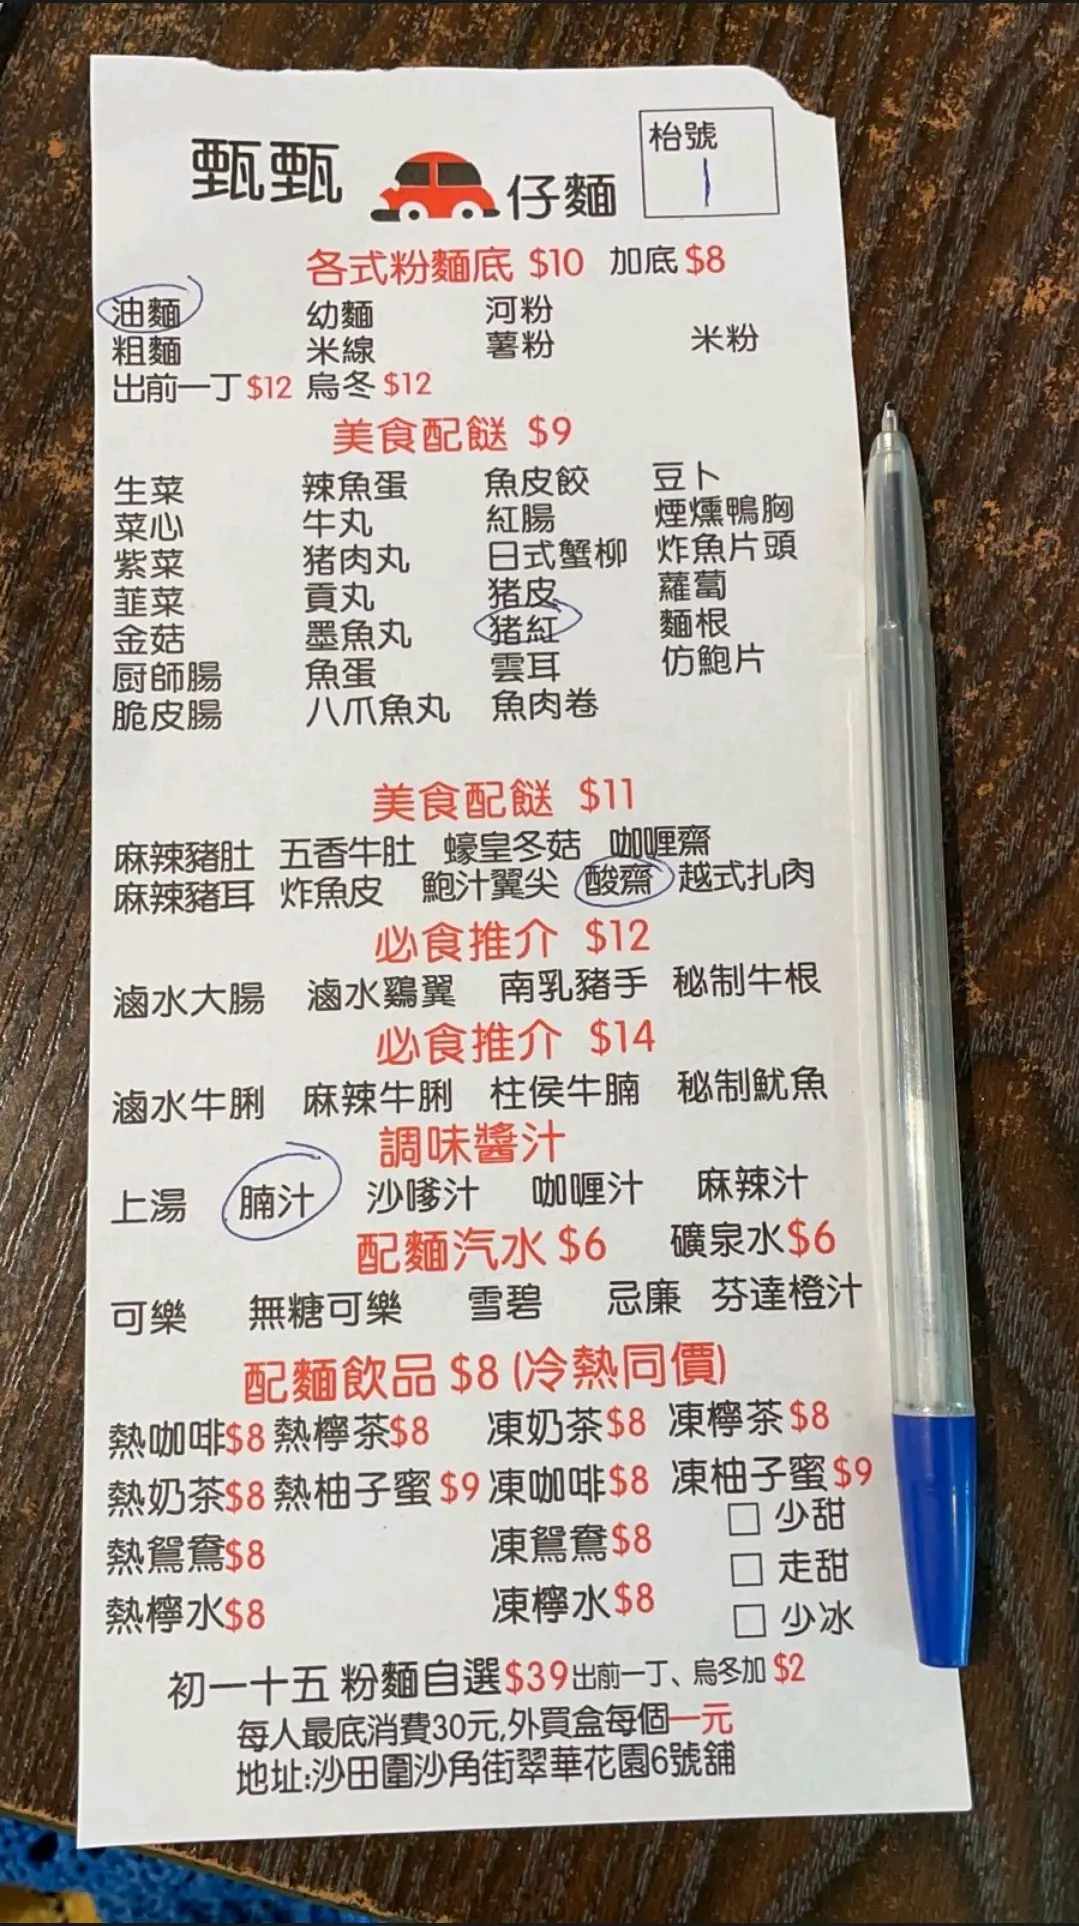 甄甄 仔麵
枱號
1
各式粉麵底 $10 加底 $8
油麵 幼麵 河粉
粗麵 米線 薯粉 米粉
出前一丁 $12 烏冬 $12
美食配餸 $9
生菜 辣魚蛋 魚皮餃 豆卜
菜心 牛丸 紅腸 煙燻鴨胸
紫菜 猪肉丸 日式蟹柳 炸魚片頭
韮菜 貢丸 猪皮 蘿蔔
金菇 墨魚丸 猪紅 麵根
厨師腸 魚蛋 雲耳 仿鮑片
脆皮腸 八爪魚丸 魚肉卷
美食配餸 $11
麻辣豬肚 五香牛肚 蠔皇冬菇 咖喱齋
麻辣豬耳 炸魚皮 鮑汁翼尖 酸齋 越式扎肉
必食推介 $12
滷水大腸 滷水鷄翼 南乳豬手 秘制牛根
必食推介 $14
滷水牛脷 麻辣牛脷 柱侯牛腩 秘制魷魚
調味醬汁
上湯 腩汁 沙嗲汁 咖喱汁 麻辣汁
配麵汽水 $6 礦泉水 $6
可樂 無糖可樂 雪碧 忌廉 芬達橙汁
配麵飲品 $8 (冷熱同價)
熱咖啡$8 熱檸茶$8 凍奶茶$8 凍檸茶$8
熱奶茶$8 熱柚子蜜 $9 凍咖啡$8 凍柚子蜜$9
熱鴛鴦$8 凍鴛鴦$8 □ 少甜
□ 走甜
熱檸水$8 凍檸水$8 □ 少冰
初一十五 粉麵自選$39出前一丁、烏冬加 $2
每人最底消費30元,外買盒每個一元
地址:沙田圍沙角街翠華花園6號舖